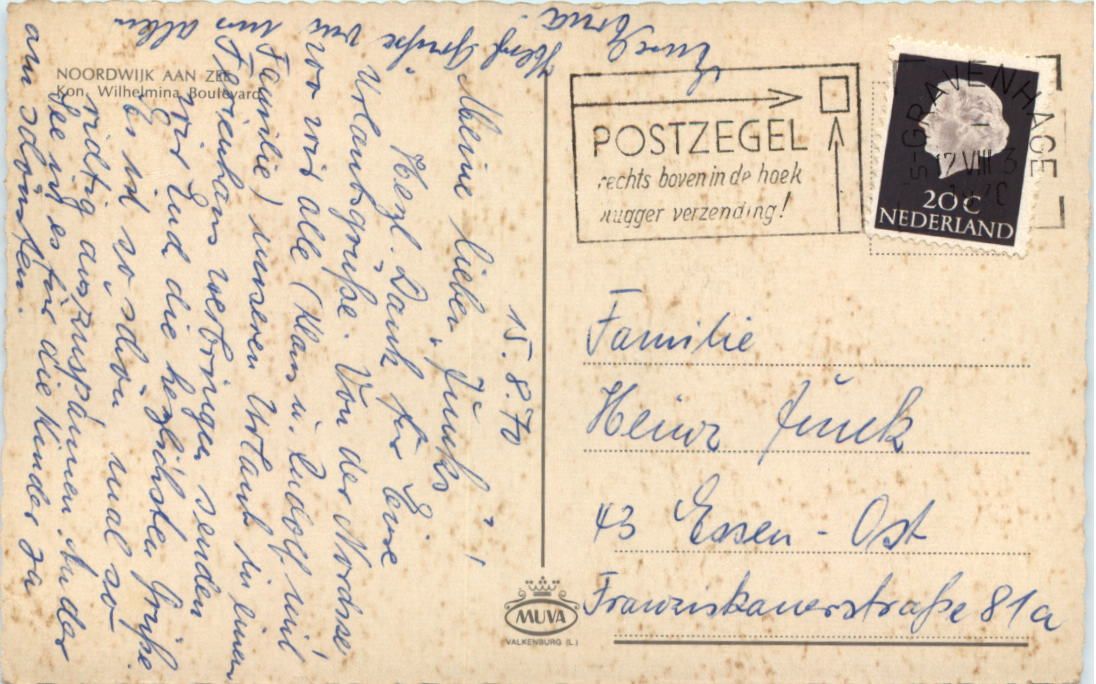 NOORDWIJK AAN ZEE
Kon. Wilhelmina Boulevard
15.8.70
Meine lieben Jüncks!
Herzl. Dank für Eure
Urlaubsgrüße. Von der Nordsee
wo wir alle (Klaus u. Rudolf mit
Familie) unseren Urlaub in einem
Ferienhaus verbringen senden
wir Euch die herzlichsten Grüße
Es ist so schön mal so
richtig auszuspannen. An der
See ist es für die Kinder ja
am schönsten.
Herzl. Grüße von
uns allen
Eure Anna!
POSTZEGEL
rechts boven in de hoek
vlugger verzending!
'S-GRAVENHAGE
VIII
20c
NEDERLAND
Familie
Heinz Jünck
43 Essen-Ost
Franziskanerstraße 81a
MUVA
VALKENBURG (L.)